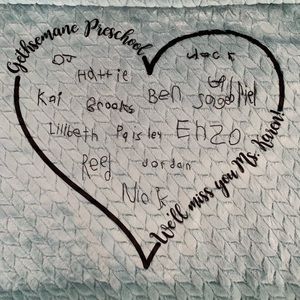 Gethsemane Preschool
DJ
Jack
Hattie
Kai
Brooks
Ben
Lilibeth
Paisley
Enzo
Reef
Jordan
Nick
We'll miss you Ms. Karen!